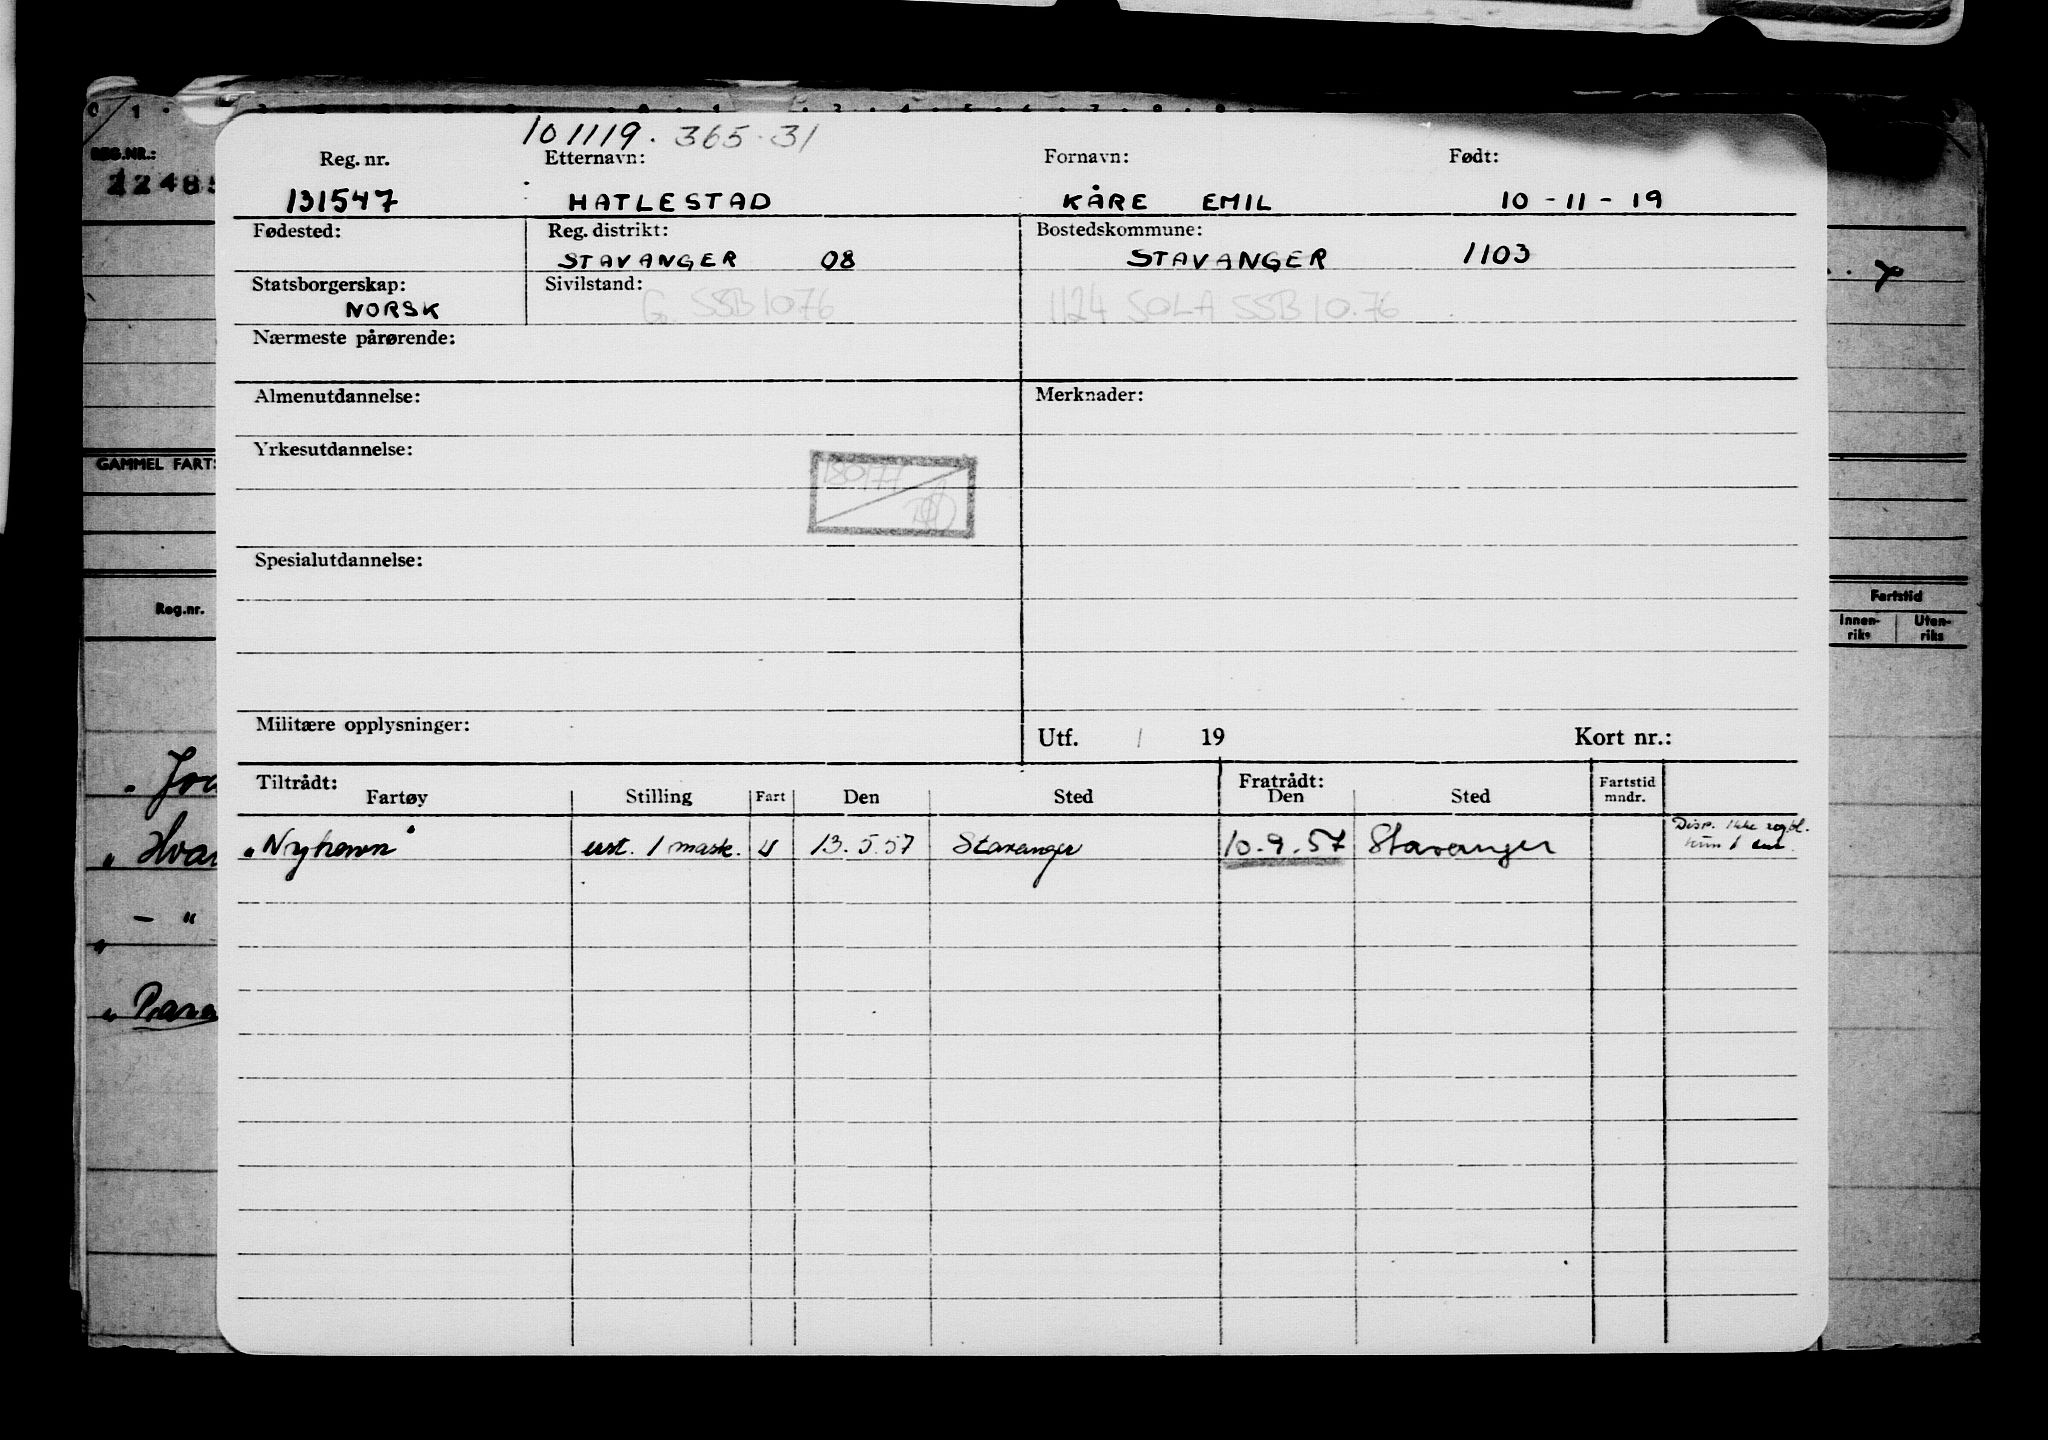 101119. 365.31
Reg. nr. Etternavn: Fornavn: Født:
131547 HATLESTAD KÅRE EMIL 10-11-19
Fødested: Reg. distrikt: Bostedskommune:
STAVANGER 08 STAVANGER 1103
Statsborgerskap: Sivilstand:
NORSK G. SSB 10.76 1124 SOLA SSB 10.76
Nærmeste pårørende:
Almenutdannelse: Merknader:
Yrkesutdannelse:
Spesialutdannelse:
Militære opplysninger: Utf. / 19 Kort nr.:
Tiltrådt: Fratrådt: Fartstid
Fartøy Stilling Fart Den Sted Den Sted mndr.
1 mask. U 13.5.57 Stavanger 10.9.57 Stavanger Disp. ikke
REG.NR.:
GAMMEL FART
Reg.nr.
Fartstid
Innen-
riks
Uten-
riks